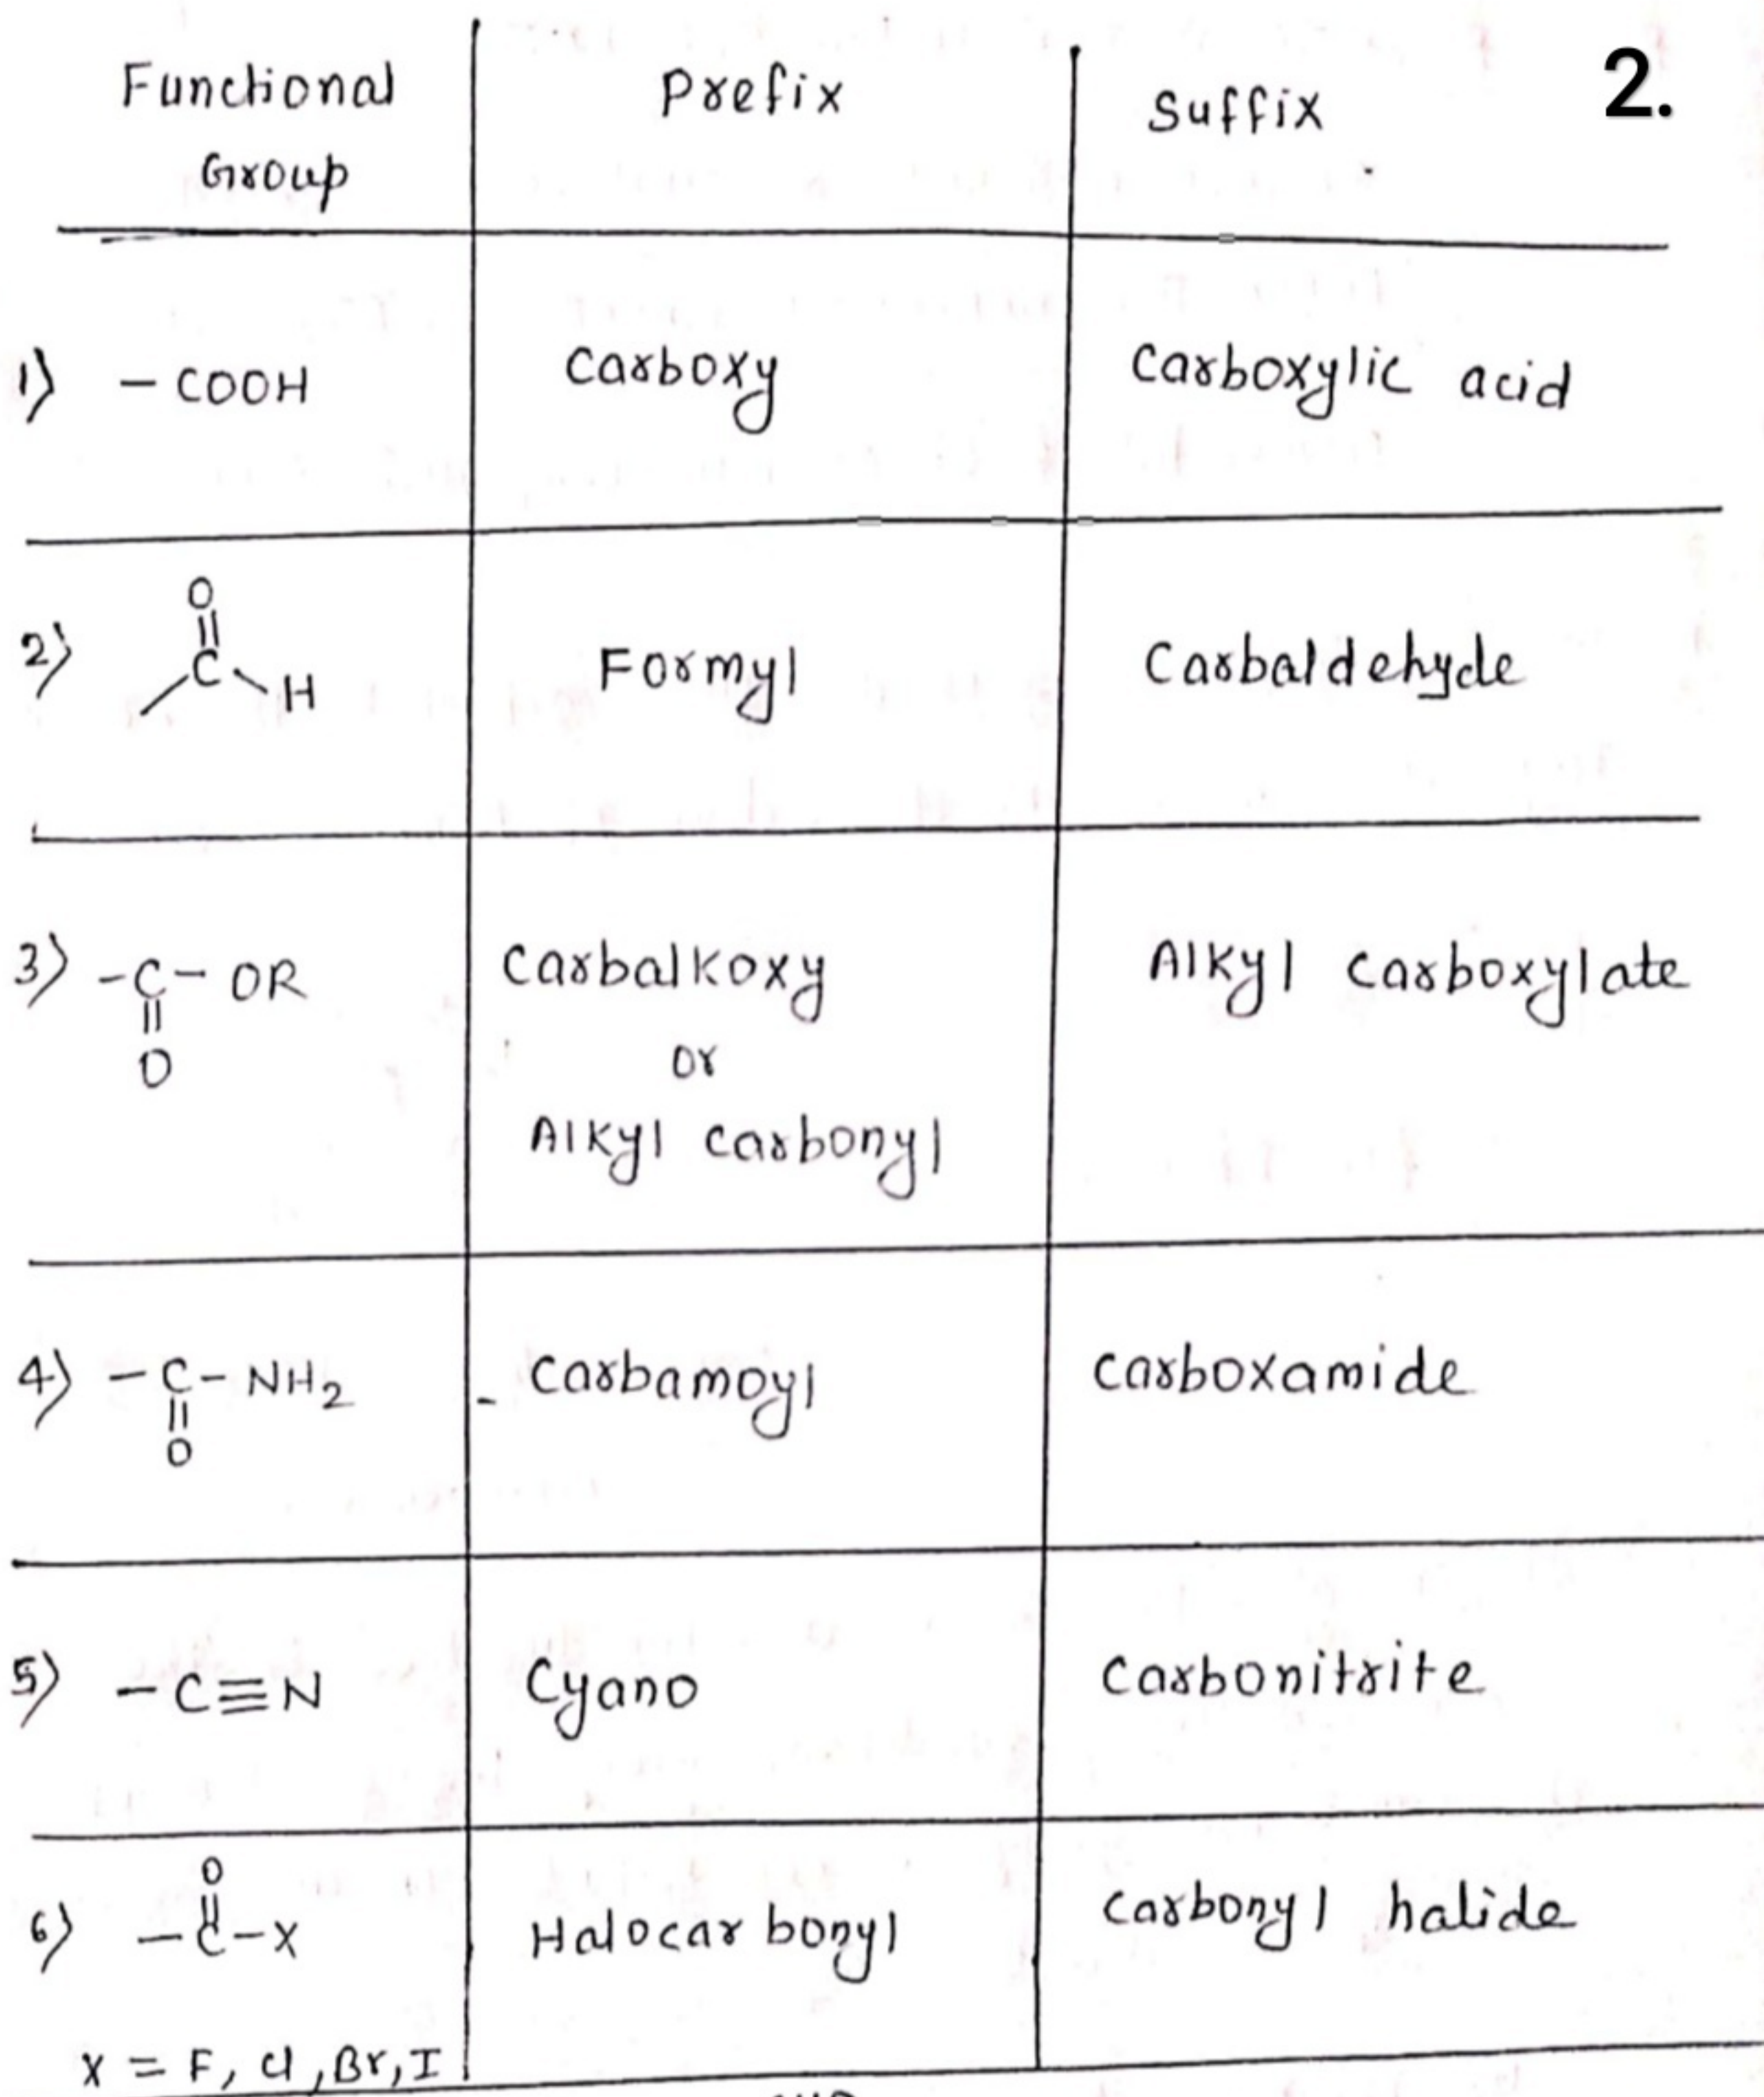 Functional Group
Prefix
Suffix
2.
1) -COOH
Carboxy
Carboxylic acid
2)
O
||
C
H
Formyl
Carbaldehyde
3) -C-OR
||
O
Carbalkoxy
or
Alkyl carbonyl
Alkyl carboxylate
4) -C-NH₂
||
O
- Carbamoyl
Carboxamide
5) -C≡N
Cyano
Carbonitrite
6)
O
||
-C-X
X = F, Cl, Br, I
Halocarbonyl
Carbonyl halide